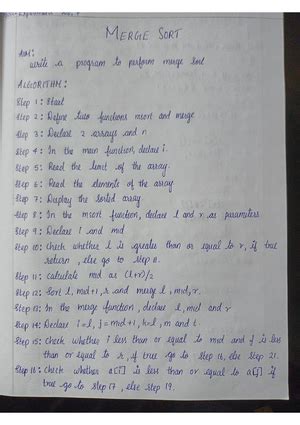 MERGE SORT
AIM:
write a program to perform merge sort
ALGORITHM:
Step 1: Start
Step 2: Define two functions msort and merge
Step 3: Declare 2 arrays and n
Step 4: In the main function, declare i.
Step 5: Read the limit of the array.
Step 6: Read the elements of the array
Step 7: Display the sorted array
Step 8: In the msort function, declare l and r as parameters
Step 9: Declare i and mid
Step 10: Check whether l is greater than or equal to r, if true
return, else go to step
Step 11: Calculate mid as (l+r)/2
Step 12: Sort l, mid+1, r and merge l, mid, r.
Step 13: In the merge function, declare l, mid and r
Step 14: Declare i=l, j=mid+1, k=l, m and t.
Step 15: Check whether i less than or equal to mid and j is less
than or equal to r, if true go to step 16, else step 21.
Step 16: Check whether a[i] is less than or equal to a[j] if
true go to step 17, else step 19.